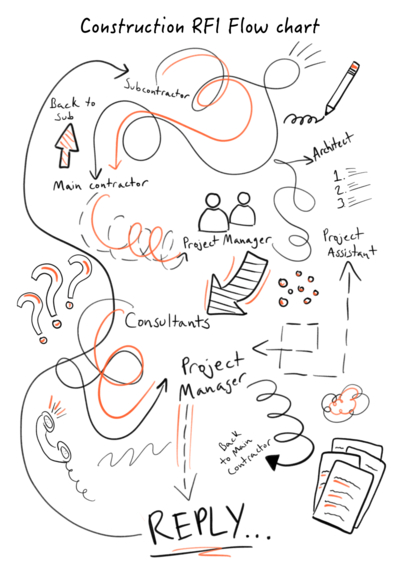 Construction RFI Flow chart
Subcontractor
Back to
Sub
Architect
Main contractor
1.
2.
3
Project Manager
Project
Assistant
Consultants
Project
Manager
Back
to Main
Contractor
REPLY...